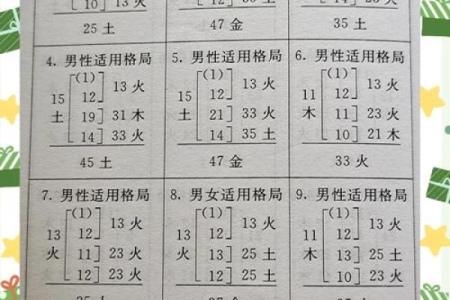 10] 13 火
25 土
47 金
35 土
4. 男性适用格局
(1)
12] 13 火
15 土
19] 31 木
14] 33 火
45 土
5. 男性适用格局
(1)
12] 13 火
15 土
21] 33 火
14] 35 土
47 金
6. 男性适用格局
(1)
12] 13 火
11 木
11] 23 火
10] 21 木
33 火
7. 男性适用格局
(1)
12] 13 火
13 火
11] 23 火
12] 23 火
8. 男女适用格局
(1)
12] 13 火
13 火
13] 25 土
12] 25 土
9. 男性适用格局
(1)
12] 13 火
11 木
13] 25 土
10] 23 火